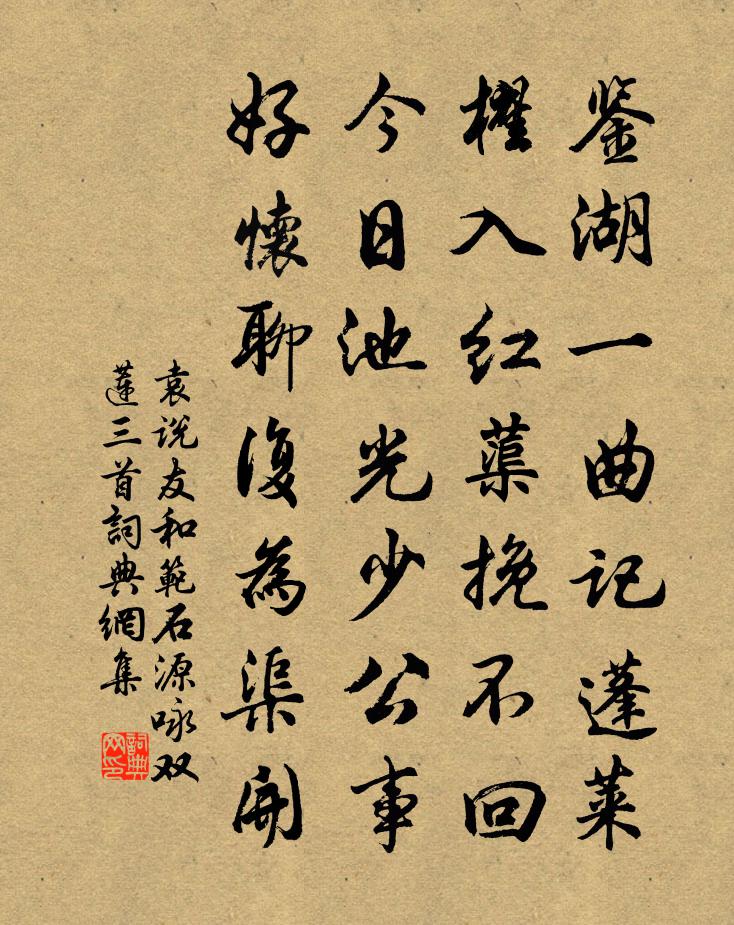 鉴湖一曲记蓬莱
櫂入红蕖挽不回
今日池光少公事
好懷聊復為渠開
袁说友和範石源咏双
蓮三首詞典網集
詞典
网印